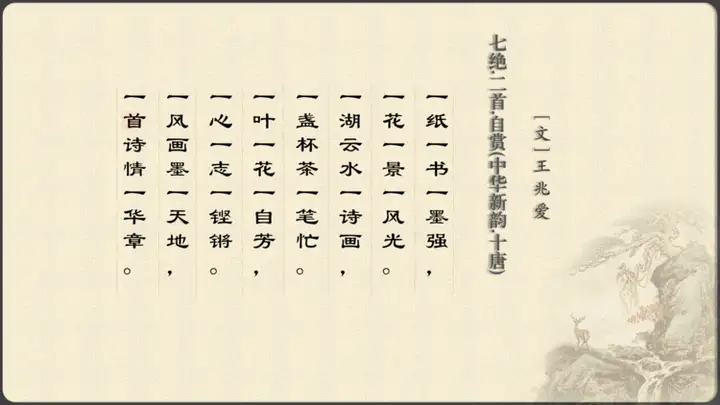 七绝·二首·自赏(中华新韵·十唐)
[文]王兆爱
一纸一书一墨强，
一花一景一风光。
一湖云水一诗画，
一盏杯茶一笔忙。
一叶一花一自芳，
一心一志一铿锵。
一风画墨一天地，
一首诗情一华章。